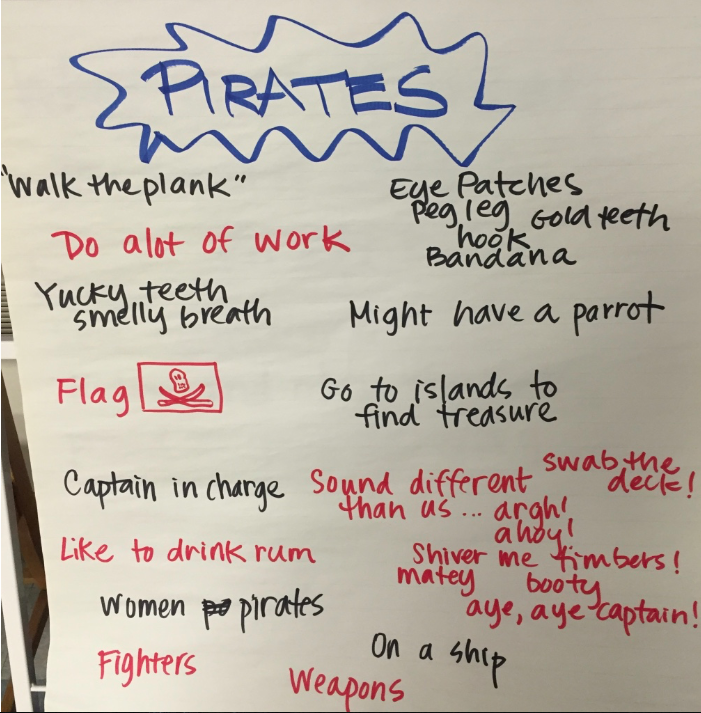 PIRATES
"Walk the plank"
Eye Patches
Peg leg Gold teeth
hook
Bandana
Do alot of work
Yucky teeth
smelly breath
Might have a parrot
Flag
Go to islands to
find treasure
Captain in charge
Sound different
than us... argh!
ahoy!
swab the
deck!
Shiver me timbers!
matey booty
aye, aye captain!
Like to drink rum
Women pirates
On a ship
Fighters
Weapons